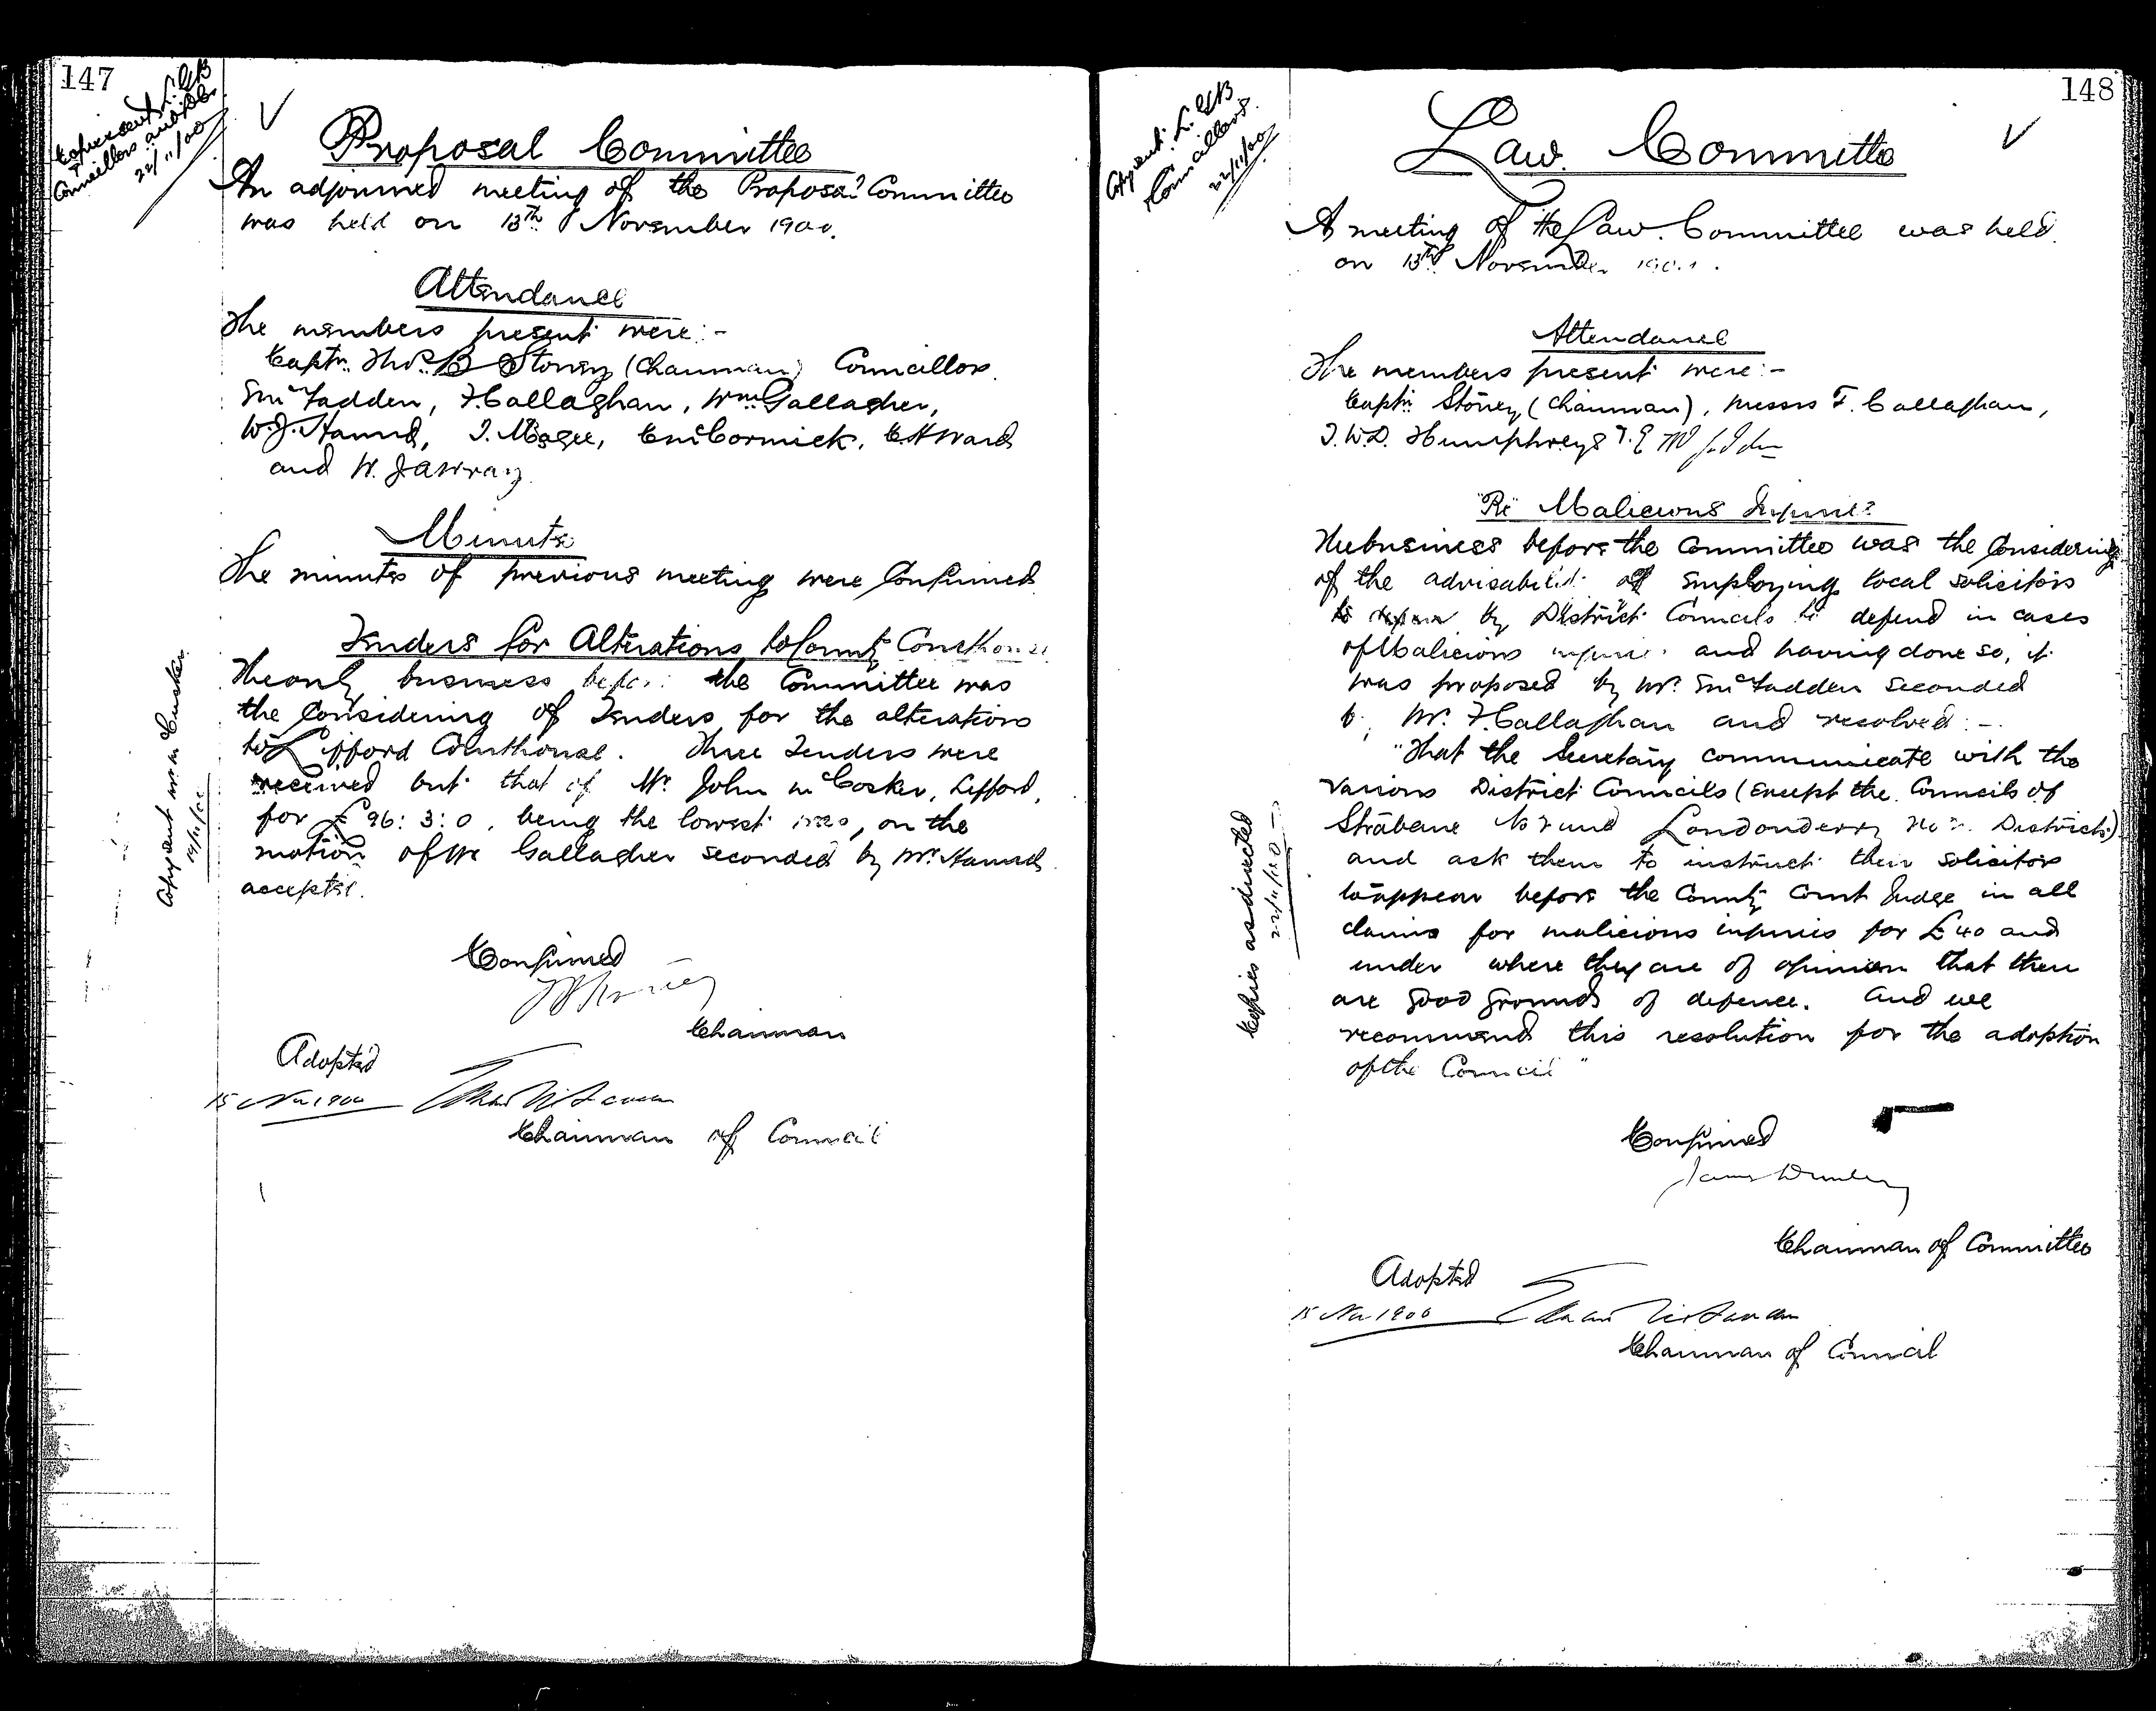 147
Copies sent L.G.B
& Councillors and
22/11/00
Proposal Committee
An adjourned meeting of the Proposal Committee
was held on 13th November 1900.
Attendance
The members present were:-
Captn. Thos. B Stoney (Chairman) Councillors
E McFadden, F. Callaghan, Wm Gallagher,
W.J. Hanna, J. Magee, E McCormick, E H Ward
and W. J A Wray
Minutes
The minutes of previous meeting were Confirmed
Tenders for Alterations to County Courthouse
The only business before the Committee was
the Considering of Tenders for the alterations
to Lifford Courthouse. Three Tenders were
received but that of Mr John McCosker, Lifford,
for £96:3:0, being the lowest was, on the
motion of Mr Gallagher seconded by Mr Hanna
accepted.
Copy sent Mr McCusker
19/11/00
Confirmed
Chairman
Adopted
15 Nov 1900
Chairman of Council
148
Copy sent L.G.B
Councillors
22/11/00
Law Committee
A meeting of the Law Committee was held
on 13th November 1900.
Attendance
The members present were:-
Captn Stoney (Chairman), Messrs F. Callaghan,
T.W.D. Humphreys
"Re" Malicious Injuries
The business before the Committee was the Considering
of the advisability of employing local solicitors
by District Councils to defend in cases
of Malicious injuries and having done so, it
was proposed by Mr. E McFadden seconded
by Mr. F Callaghan and resolved:-
"That the Secretary communicate with the
various District Councils (except the Councils of
Strabane No 2 and Londonderry No 2 Districts)
and ask them to instruct their solicitors
to appear before the County Court Judge in all
claims for malicious injuries for £40 and
under where they are of opinion that there
are good grounds of defence. And we
recommend this resolution for the adoption
of the Council"
Copies as directed
22/11/00
Confirmed
Chairman of Committee
Adopted
15 Nov 1900
Chairman of Council